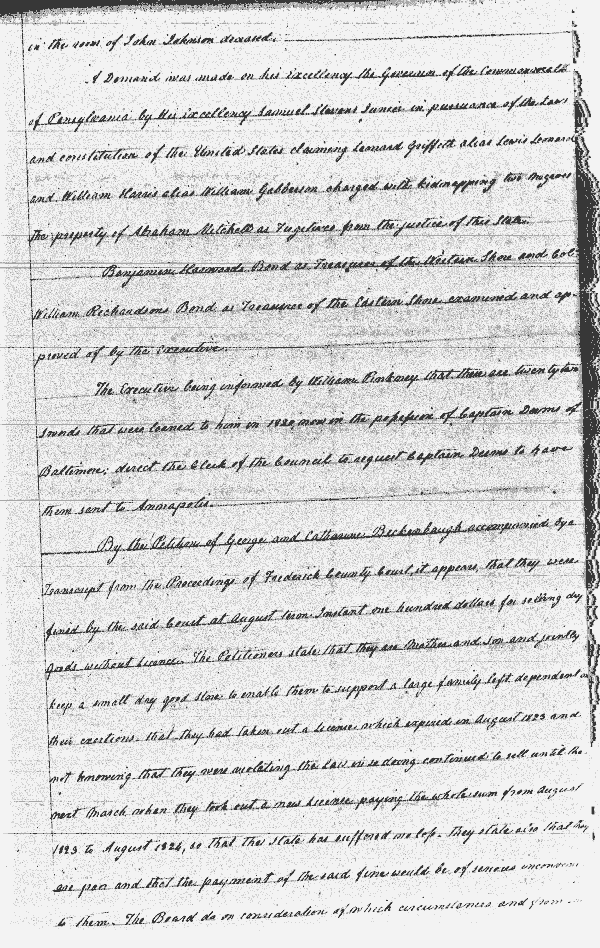 in the room of John Johnson deceased.
A Demand was made on his Excellency the Governor of the Commonwealth
of Pensylvania by His Excellency Samuel Stevens Junior in pursuance of the Laws
and constitution of the United States claiming Leonard Griffith alias Lewis Leonard
and William Harris alias William Gabberson charged with kidnapping two negroes
the property of Abraham Mitchell as Fugitives from the justice of this State.
Benjamin Harwoods Bond as Treasurer of the Western Shore and Col:
William Richardsons Bond as Treasurer of the Eastern Shore examined and ap-
proved of by the Executive.
The Executive being informed by William Pinkney that there are twenty two
swords that were loaned to him in 1820 now in the possession of Captain Deems of
Baltimore; direct the Clerk of the Council to request Captain Deems to have
them sent to Annapolis.
By the Petition of George and Catharine Beckenbaugh accompanied by a
Transcript from the Proceedings of Frederick County Court, it appears, that they were
fined by the said Court at August term Instant one hundred dollars for selling dry
goods without licence. The Petitioners state that they are Mother and Son and jointly
keep a small dry good store to enable them to support a large family left dependent on
their exertions. that they had taken out a License which expired in August 1823 and
not knowing that they were violating the Law in so doing continued to sell until the
next March when they took out a new License paying the whole sum from August
1823 to August 1824, so that the State has suffered no loss. they state also that they
are poor and that the payment of the said fine would be of serious
to them. The Board do on consideration of which circumstances and from